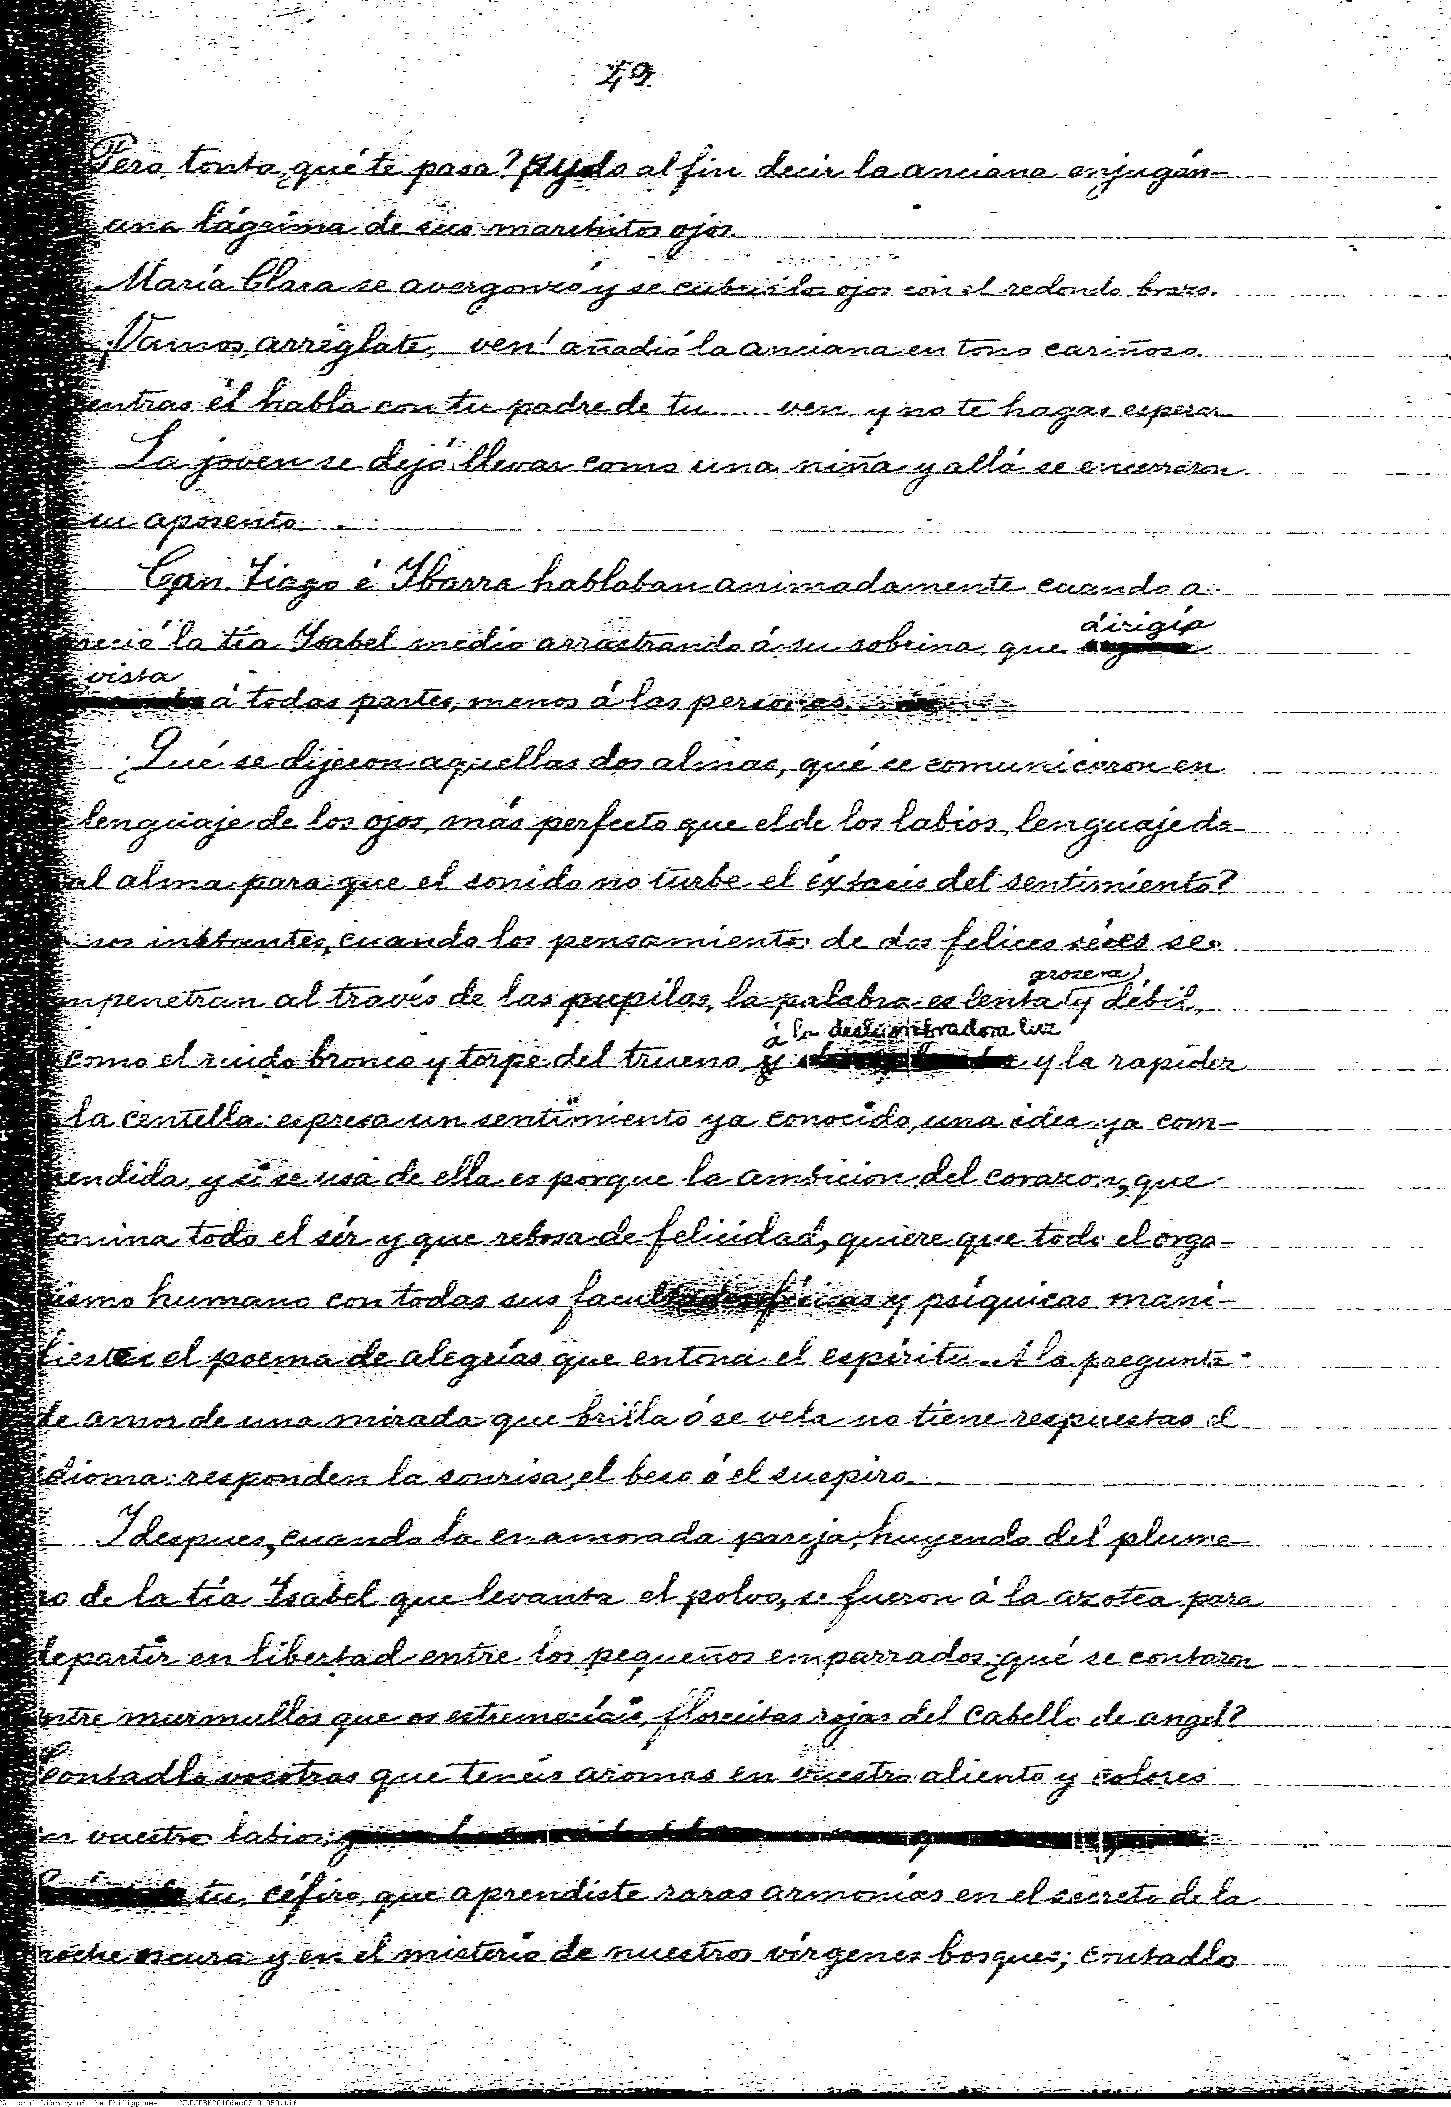 49
Pero tonta ¿qué te pasa? pudo al fin decir la anciana enjugán-
una lágrima de sus marchitos ojos.
María Clara se avergonzó y se cubrió los ojos con el redondo brazo.
¡Vamos, arréglate, ven! añadió la anciana en tono cariñoso.
entras él habla con tu padre de tu .... ven y no te hagas esperar
La joven se dejó llevar como una niña y allá se encerraron
su aposento.
Cpn. Tiago é Ibarra hablaban animadamente cuando a
reció la tía Isabel medio arrastrando á su sobrina, que dirigía
vista á todas partes, menos á las personas.
¿Qué se dijeron aquellas dos almas, qué se comunicaron en
lenguaje de los ojos, más perfecto que el de los labios, lenguaje da
al alma para que el sonido no turbe el éxtasis del sentimiento?
sos instantes, cuando los pensamientos de dos felices séres se
mpenetran al través de las pupilas, la palabra es lenta, grosera y débil,
como el ruido bronco y torpe del trueno á la deslumbradora luz y la rapidez
la centella: espresa un sentimiento ya conocido, una idea ya com-
rendida, y si se usa de ella es porque la ambicion del corazon, que
omina todo el sér y que rebosa de felicidad, quiere que todo el orga-
nismo humano con todas sus facultades físicas y psíquicas mani-
fieste el poema de alegrías que entona el espíritu. A la pregunta
de amor de una mirada que brilla ó se vela no tiene respuestas el
idioma: responden la sonrisa, el beso ó el suspiro.
I despues, cuando la enamorada pareja, huyendo del plume
ro de la tía Isabel que levanta el polvo, se fueron á la azotea para
departir en libertad entre los pequeños emparrados ¿qué se contaron
entre murmullos que os estremecíais, florecitas rojas del cabello de angel?
Contadlo vosotras que teneis aromas en vuestro aliento y colores
en vuestros labios;
tu, céfiro, que aprendiste raras armonías en el secreto de la
noche oscura y en el misterio de nuestros vírgenes bosques; contadlo